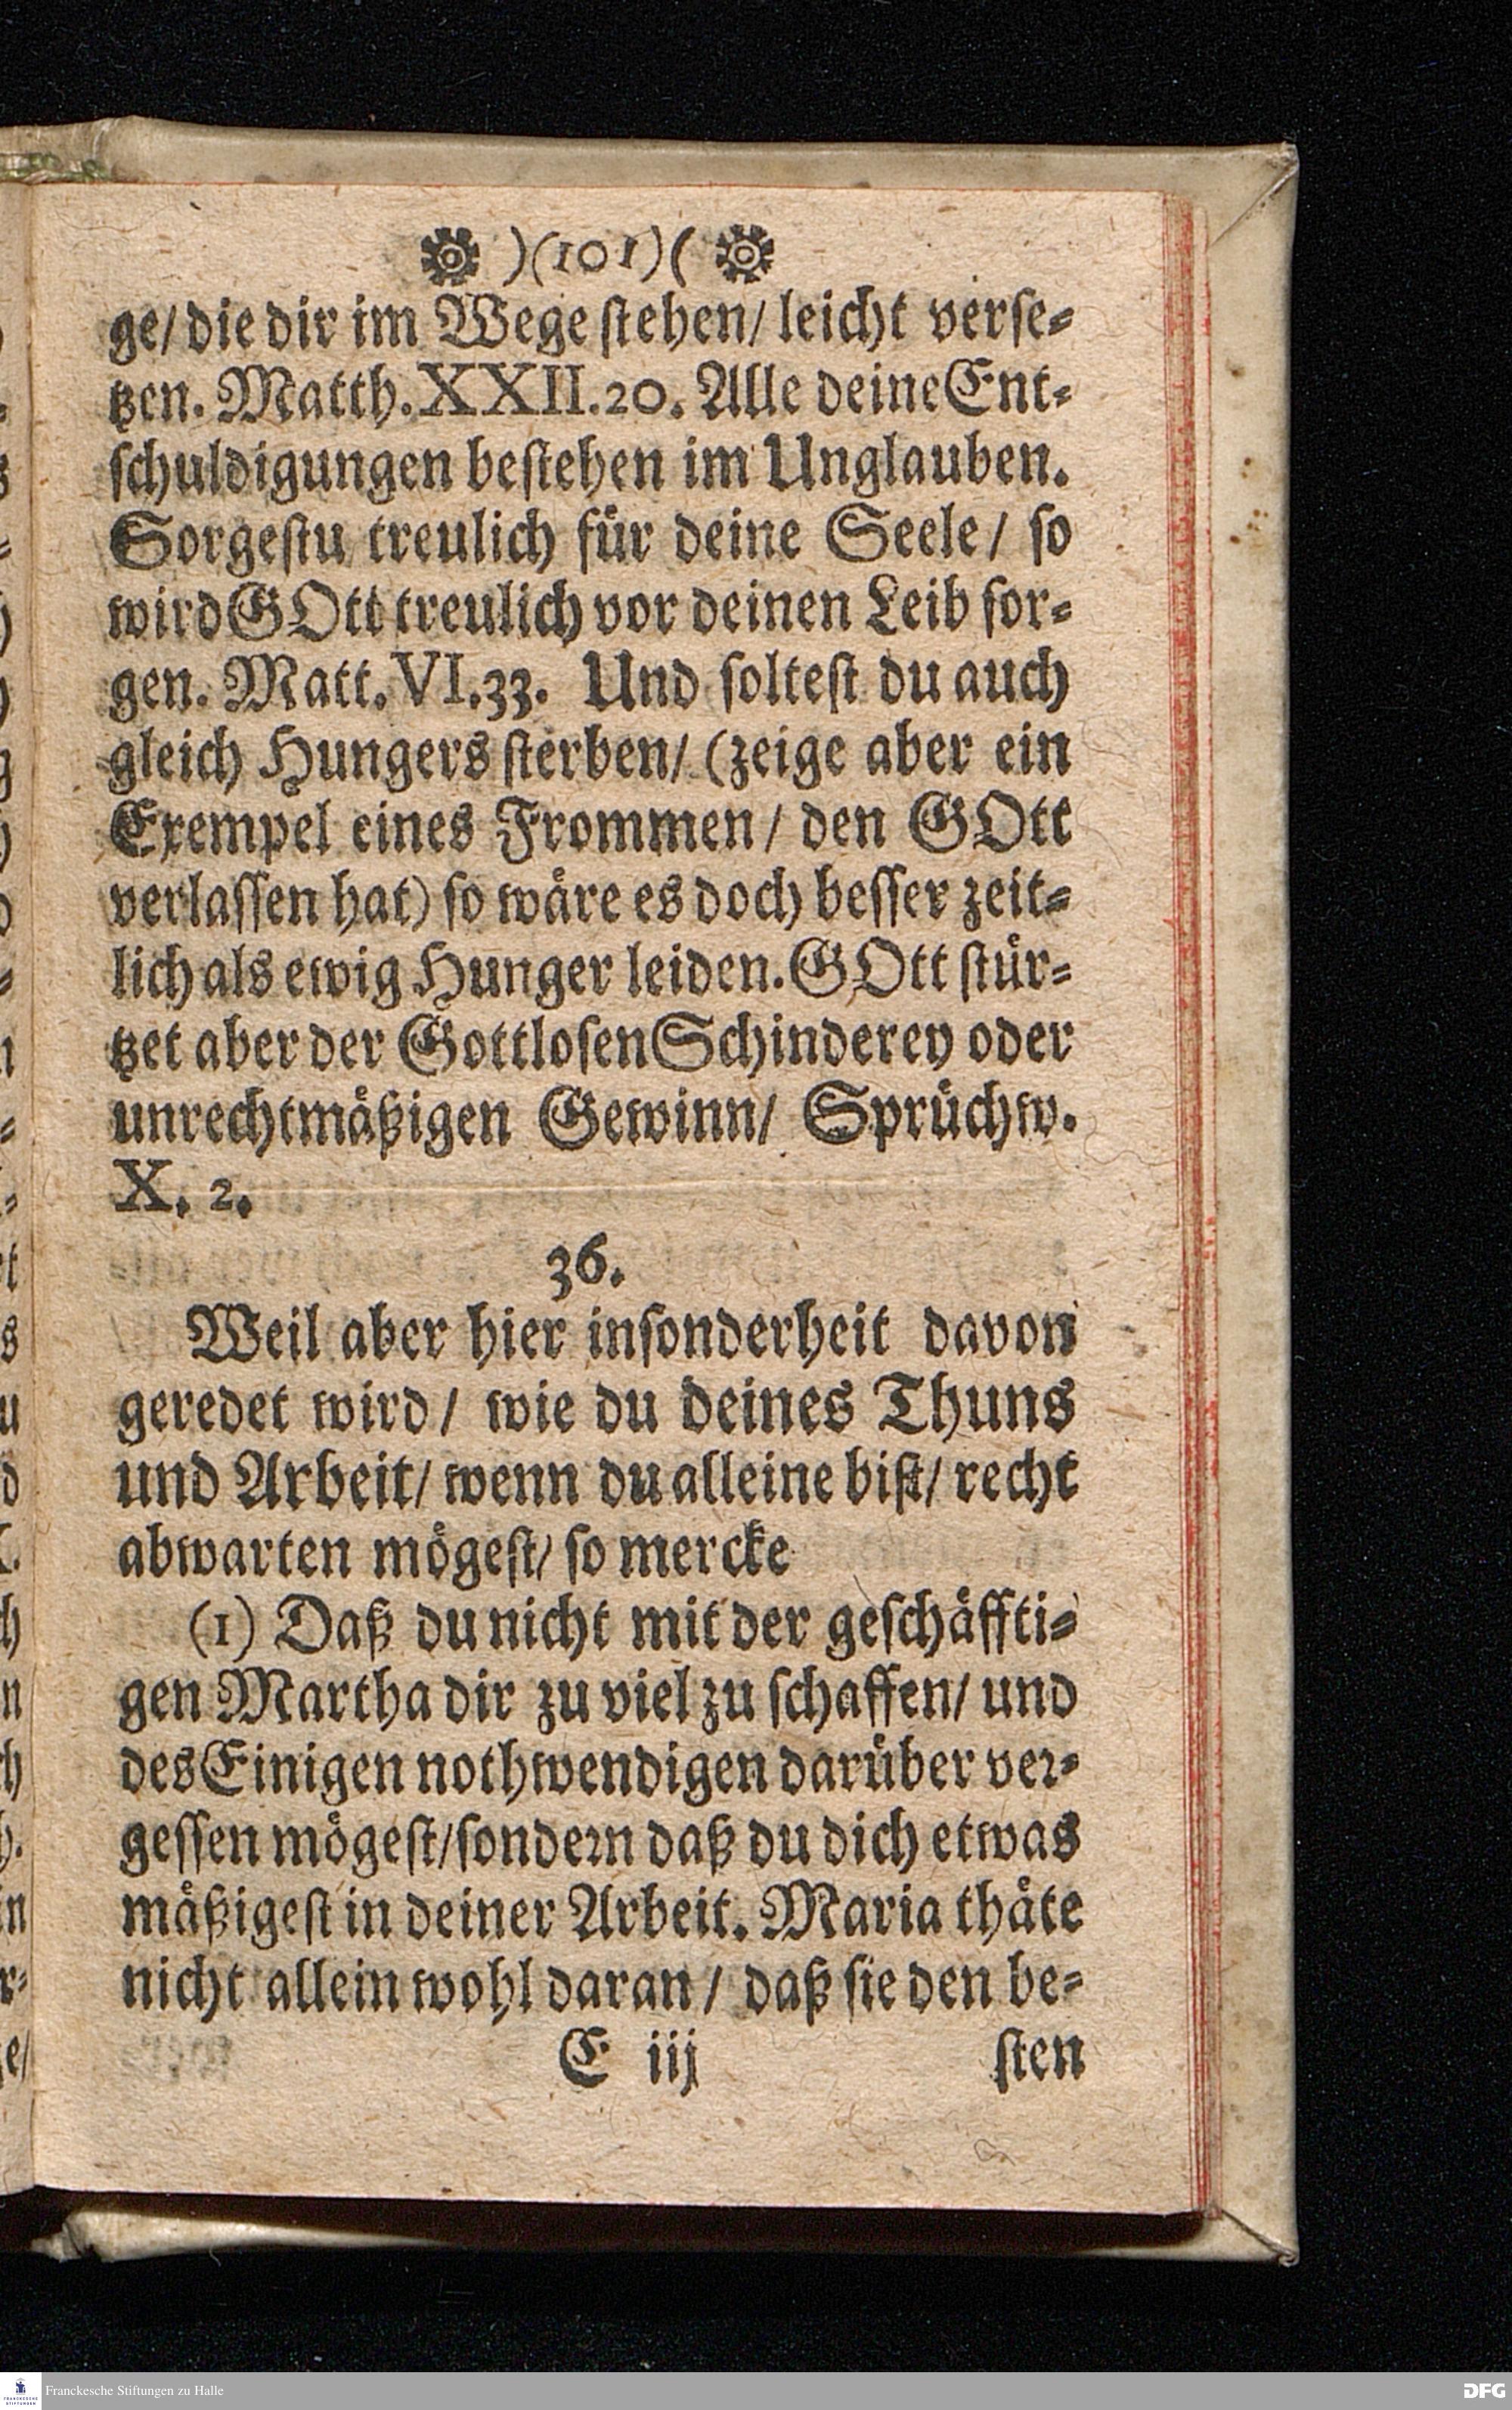 )(101)(
ge/ die dir im Wege stehen/ leicht verse-
tzen. Matth. XXII.20. Alle deine Ent-
schuldigungen bestehen im Unglauben.
Sorgestu treulich für deine Seele/ so
wird GOtt treulich vor deinen Leib sor-
gen. Matt. VI.33. Und soltest du auch
gleich Hungers sterben/ (zeige aber ein
Exempel eines Frommen/ den GOtt
verlassen hat) so wäre es doch besser zeit-
lich als ewig Hunger leiden. GOtt stür-
tzet aber der Gottlosen Schinderey oder
unrechtmäßigen Gewinn/ Sprüchw.
X. 2.
36.
Weil aber hier insonderheit davon
geredet wird/ wie du deines Thuns
und Arbeit/ wenn du alleine bist/ recht
abwarten mögest/ so mercke
(1) Daß du nicht mit der geschäffti-
gen Martha dir zu viel zu schaffen/ und
des Einigen nothwendigen darüber ver-
gessen mögest/ sondern daß du dich etwas
mäßigest in deiner Arbeit. Maria thäte
nicht allein wohl daran/ daß sie den be-
E iij sten
Franckesche Stiftungen zu Halle
DFG